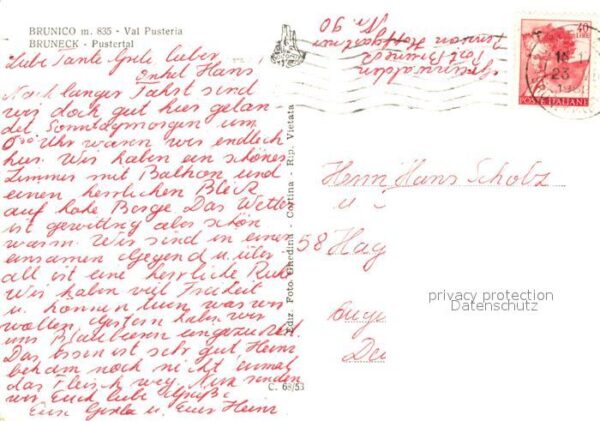 BRUNICO m. 835 - Val Pusteria
BRUNECK - Pustertal
Liebe Tante Greli, lieber
Onkel Hans
Nach langer Fahrt sind
wir doch gut hier gelan-
det Sonntagmorgen um
Uhr waren wir endlich
hier. Wir haben ein schönes
Zimmer mit Balkon und
einen herrlichen Blick
auf hohe Berge Das Wetter
ist gewittrig aber schön
warm. Wir sind in einer
einsamen Gegend u. über-
all ist eine herrliche Ruhe
Wir haben viel Freiheit
u. können tun was wir
wollen, gestern haben wir
uns Blaubeeren
Das Essen ist sehr gut, Heinz
bekam noch nicht einmal
das Fleisch weg. Nun senden
wir Euch liebe Grüße
Eure Gisela u. Euer Heinz
Ediz. Foto Ghedina - Cortina - Rip. Vietata
C. 68/53
Post Bruneck
Pension
Nr 90
40
LIRE
POSTE ITALIANE
Herrn Hans Scholz
u
58 Hag
privacy protection
Datenschutz